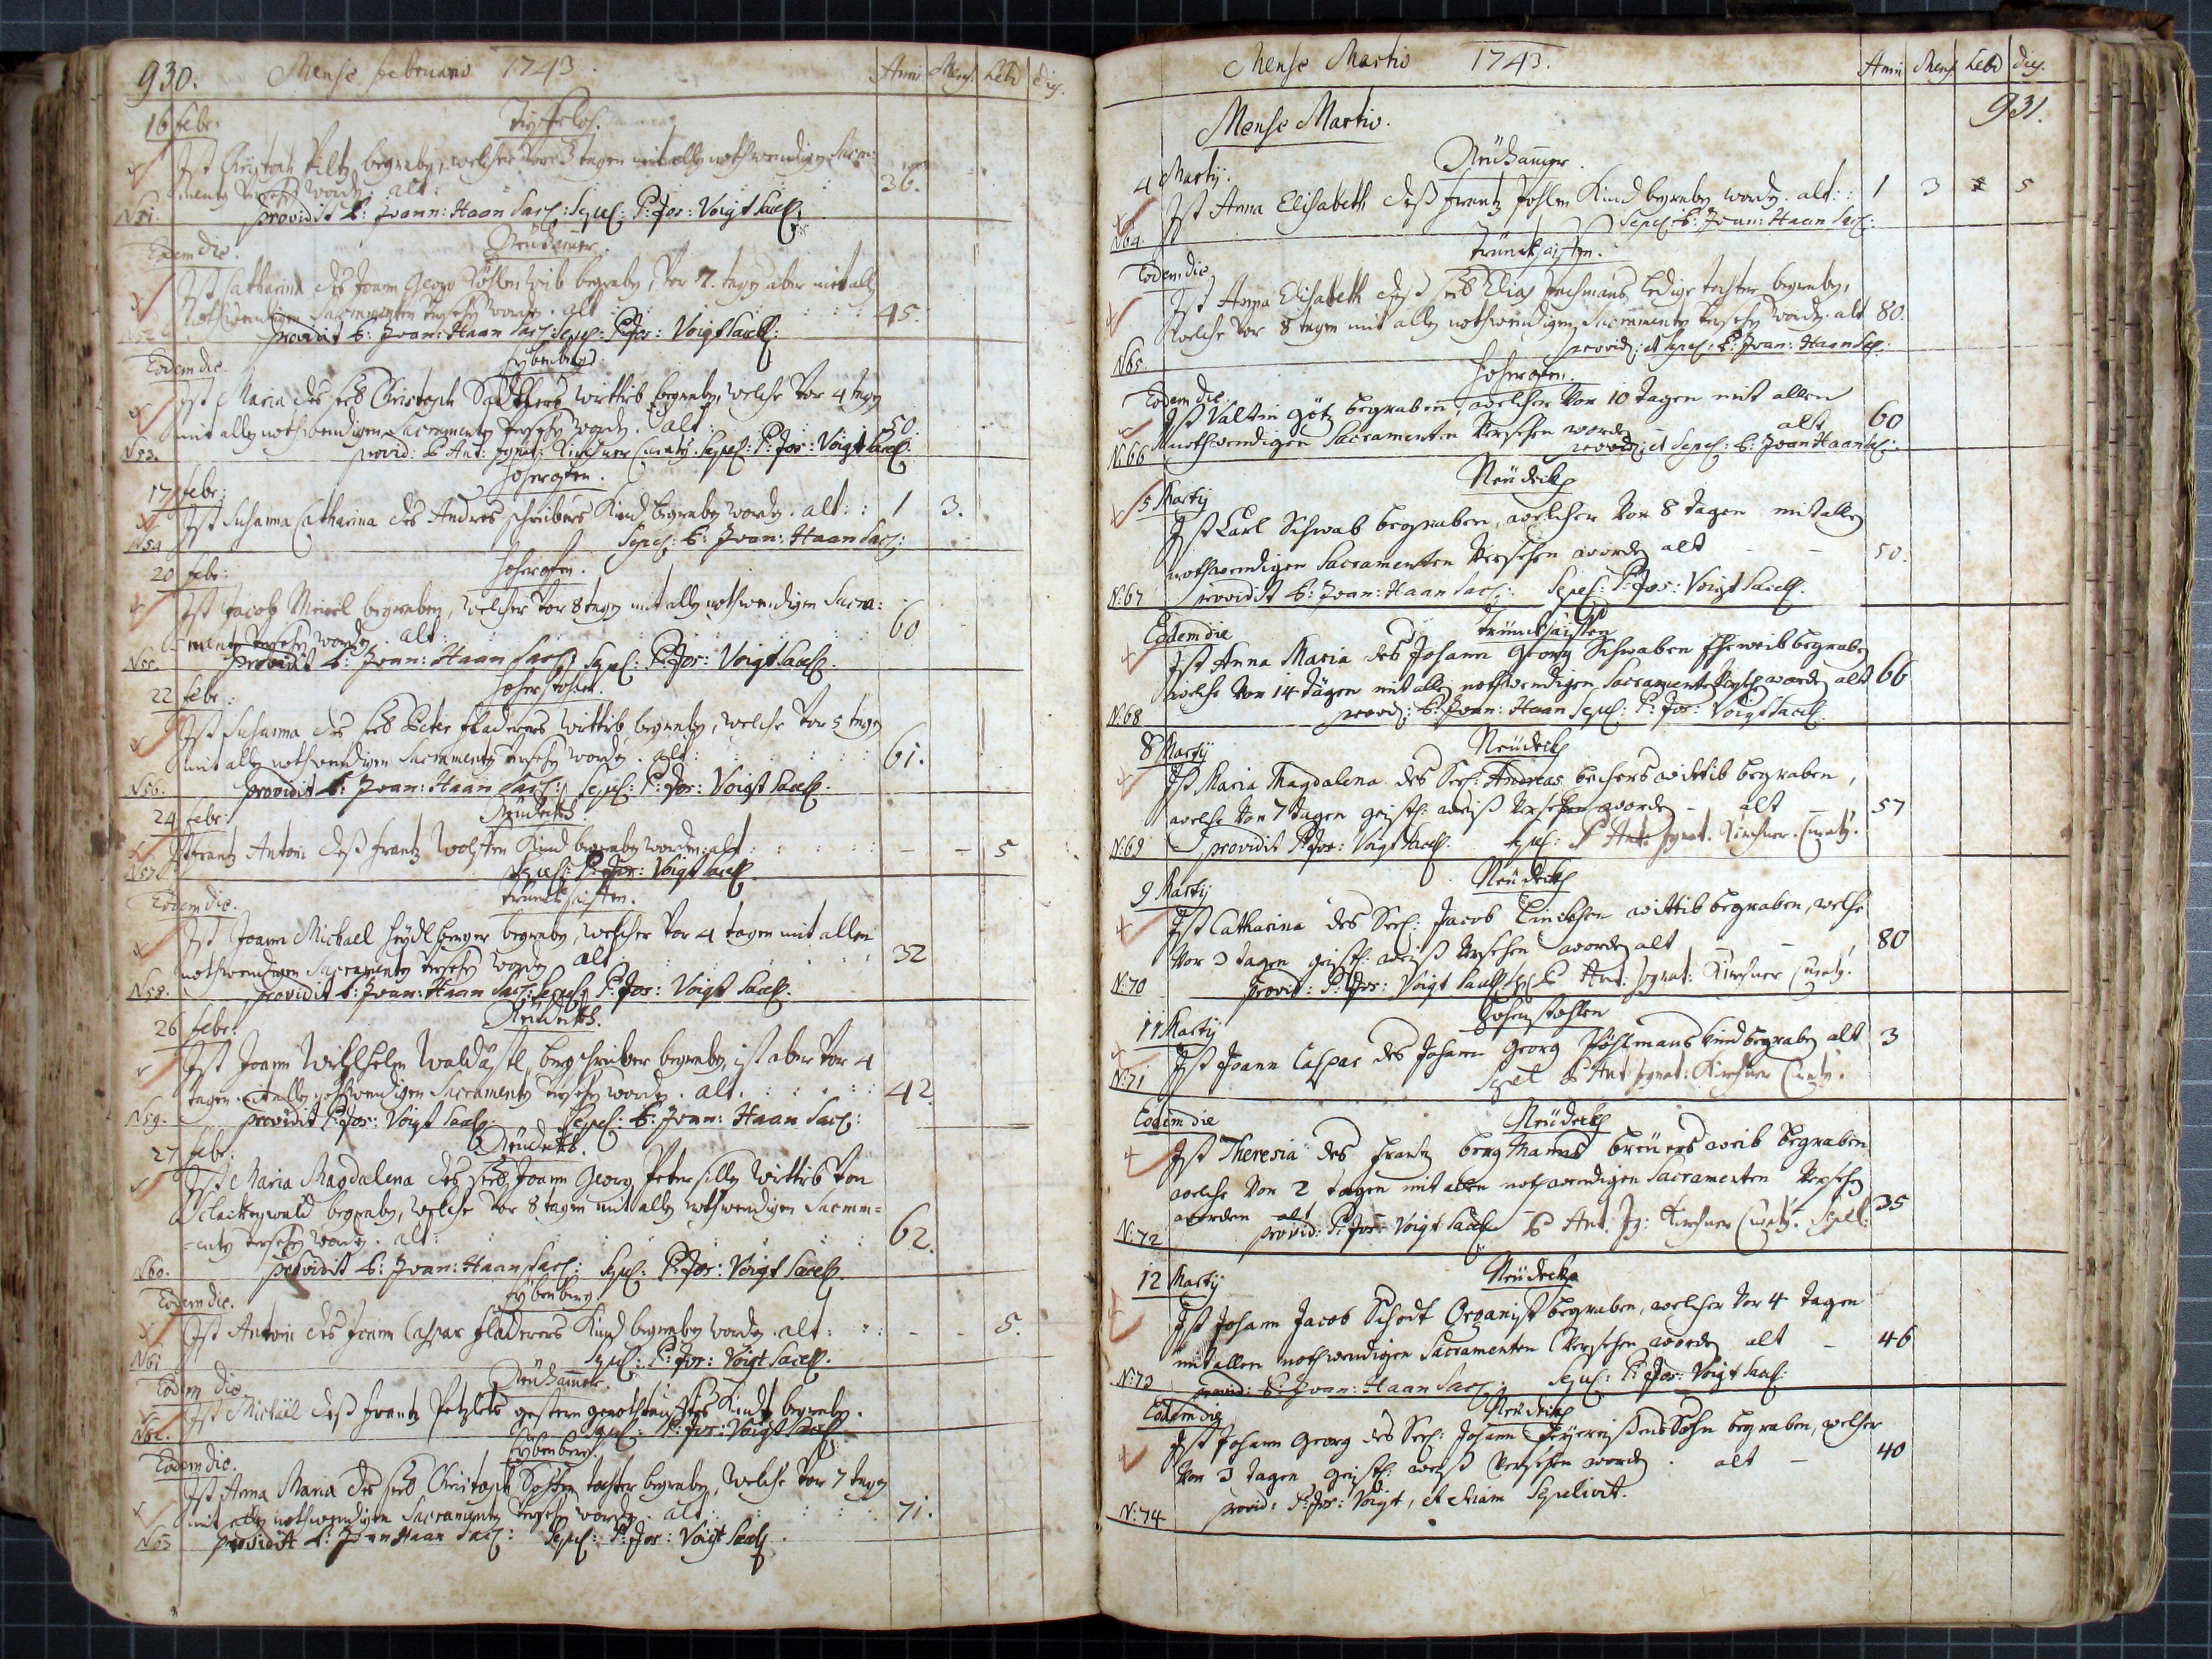 930. Mense februario 1743. Anni Mens: Hebd dies.
16 febr.
Ist Christoph Piltz begraben, welcher vor 3 tagen mit allen nothwendigen Sacra-
menten versehen worden. alt: 36.
N51. providit P: Joann: Haan Sac: Sepel: P: Jos: Voigt Sacell.
Eodem die. Neühammer.
Ist Catharina des Joann Georg weib begraben, vor 7. tagen aber mit allen
nothwendigen Sacramenten versehen worden. alt 45.
N52 providit P: Joan: Haan Sac: Sepel: P: Jos: Voigt Sacell:
Eodem die. Eybenberg.
Ist Maria des seel Christoph wittib begraben, welche vor 4 tagen
mit allen nothwendigen Sacramenten versehen worden. alt: 50.
N53. provid: P Ant: Ignat: Kirchner Curaty. Sepel: P: Jos: Voigt Sacell.
17 febr: Hoherofen.
Ist Susanna Catharina des Andres schreibers Kind begraben worden. alt: : 1 3.
N54 Sepel: P: Joan: Haan Sac:
20 febr: Hoherofen.
Ist Jacob Meinel begraben, welcher vor 8 tagen mit allen nothwendigen Sacra:
menten versehen worden. alt: 60
N55. providit P: Joan: Haan Sac: Sepel: P: Jos: Voigt Sacell.
22 febr:
Ist Susanna des seel Peter fladerers wittib begraben, welche vor 5 tagen
mit allen nothwendigen Sacramenten versehen worden. alt: 61.
N56. providit P: Joan: Haan Sac: Sepel: P: Jos: Voigt Sacell.
24 febr: Neüdeckh.
Ist Frantz Antoni deß frantz Kind begraben worden: alt: - - 5
N57. Sepel: P: Jos: Voigt Sacell
Eodem die. Trinckseiffen.
Ist Joann Michael Heydlberger begraben, welcher vor 4 tagen mit allen
nothwendigen Sacramenten versehen worden alt 32
N58. providit P: Joan: Haan Sac: Sepel: P: Jos: Voigt Sacell.
26 febr: Neüdeckh.
Ist Joann Wilhelm bergschreiber begraben, ist aber vor 4
tagen mit allen nothwendigen Sacramenten versehen worden. alt. 42.
N59. providit P: Jos: Voigt Sacell. Sepel: P: Joan: Haan Sac:
27 febr: Neüdeckh.
Ist Maria Magdalena des seel Joann Georg Petersilln wittib von
Schlackenwald begraben, welche vor 8 tagen mit allen nothwendigen Sacram=
=enten versehen worden. alt: 62.
N60. providit P: Joan: Haan Sac: Sepel: P: Jos: Voigt Sacell.
Eodem die. Eybenberg
Ist Antoni des Joann Caspar fladerers Kind begraben worden. alt: - - 5.
N61 Sepel: P: Jos: Voigt Sacell.
Eodem die Neühammer.
Ist Michäel deß frantz gestern genothtaufftes Kindt begraben.
N62. Sepel: P: Jos: Voigt Sacell
Eodem die. Eybenberg.
Ist Anna Maria des seel Christoph tochter begraben, welche vor 7 tagen
mit allen nothwendigen Sacramenten versehen worden. alt: 71.
N63 providit P: Joan Haan Sac: Sepel: P: Jos: Voigt Sacell.
Mense Martio 1743. Anni Mens Hebd dies.
931.
Mense Martio.
4 Martij. Neühammer.
Ist Anna Elisabeth deß frantz Kind begraben worden. alt: : 1 3 5
N64. Sepel: P: Joan: Haan Sac:
Eodem die Trinckseiffen.
Ist Anna Elisabeth deß seel Elias ledige tochter begraben,
welche vor 8 tagen mit allen nothwendigen Sacramenten versehen worden. alt 80.
N65. provid: et Sepel: P: Joan: Haan Sac:
Eodem die. Hoherofen.
Ist Valtin Götz begraben, welcher vor 10 tagen mit allen
nothwendigen Sacramenten versehen worden alt 60
N:66 provid: et Sepel: P: Joan Haan Sac:
5 Martij Neüdeckh
Ist Carl Schwab begraben, welcher vor 8 tagen mit allen
nothwendigen Sacramenten versehen worden alt - - 50.
N:67 providit P: Joan: Haan Sac: Sepel: P: Jos: Voigt Sacell.
Eodem die Trinckseiffen
Ist Anna Maria des Johann Georg Schwaben Eheweib begraben
welche vor 14 tägen mit allen nothwendigen Sacramenten versehen worden alt 66
N:68 provid: P: Joan: Haan Sepel: P: Jos: Voigt Sacell.
8 Martij Neüdeckh
Ist Maria Magdalena des Seel: Andreas bechers wittib begraben,
welche vor 7 tagen geistl: weiß versehen worden - alt - 57
N:69 providit P: Jos: Voigt Sacell. Sepel: P Ant. Ignat. Kirchner. Curaty.
9 Martij Neüdeckh
Ist Catharina des Seel: Jacob wittib begraben, welche
vor 3 tagen geistl: weiß versehen worden alt - - 80
N:70 provid: P: Jos: Voigt Sacell Sepel P Ant: Ignat: Kirchner Curaty.
11 Martij
Ist Joann Caspar des Johann Georg Pöhlmans Kind begraben alt 3
N:71 Sepel P Ant Ignat: Kirchner Curaty.
Eodem die Neüdeckh
Ist Theresia des Frantz bergManns breüers weib begraben
welche vor 2 tagen mit allen nothwendigen Sacramenten versehen
worden alt 35
N:72 provid: P: Jos: Voigt Sacell P Ant. Ig: Kirchner Curaty. Sepel:
12 Martij Neüdeckh
Ist Johann Jacob Schodt Organist begraben, welcher vor 4 tagen
mit allen nothwendigen Sacramenten versehen worden alt - 46
N:73 provid: P: Joan: Haan Sac: Sepel: P: Jos: Voigt Sacell:
Eodem die Neüdeckh
Ist Johann Georg des Seel: Johann Sohn begraben, welcher
vor 3 tagen geistl: weiß versehen worden. alt - 40
N:74 provid: P: Jos: Voigt, et etiam Sepelivit.